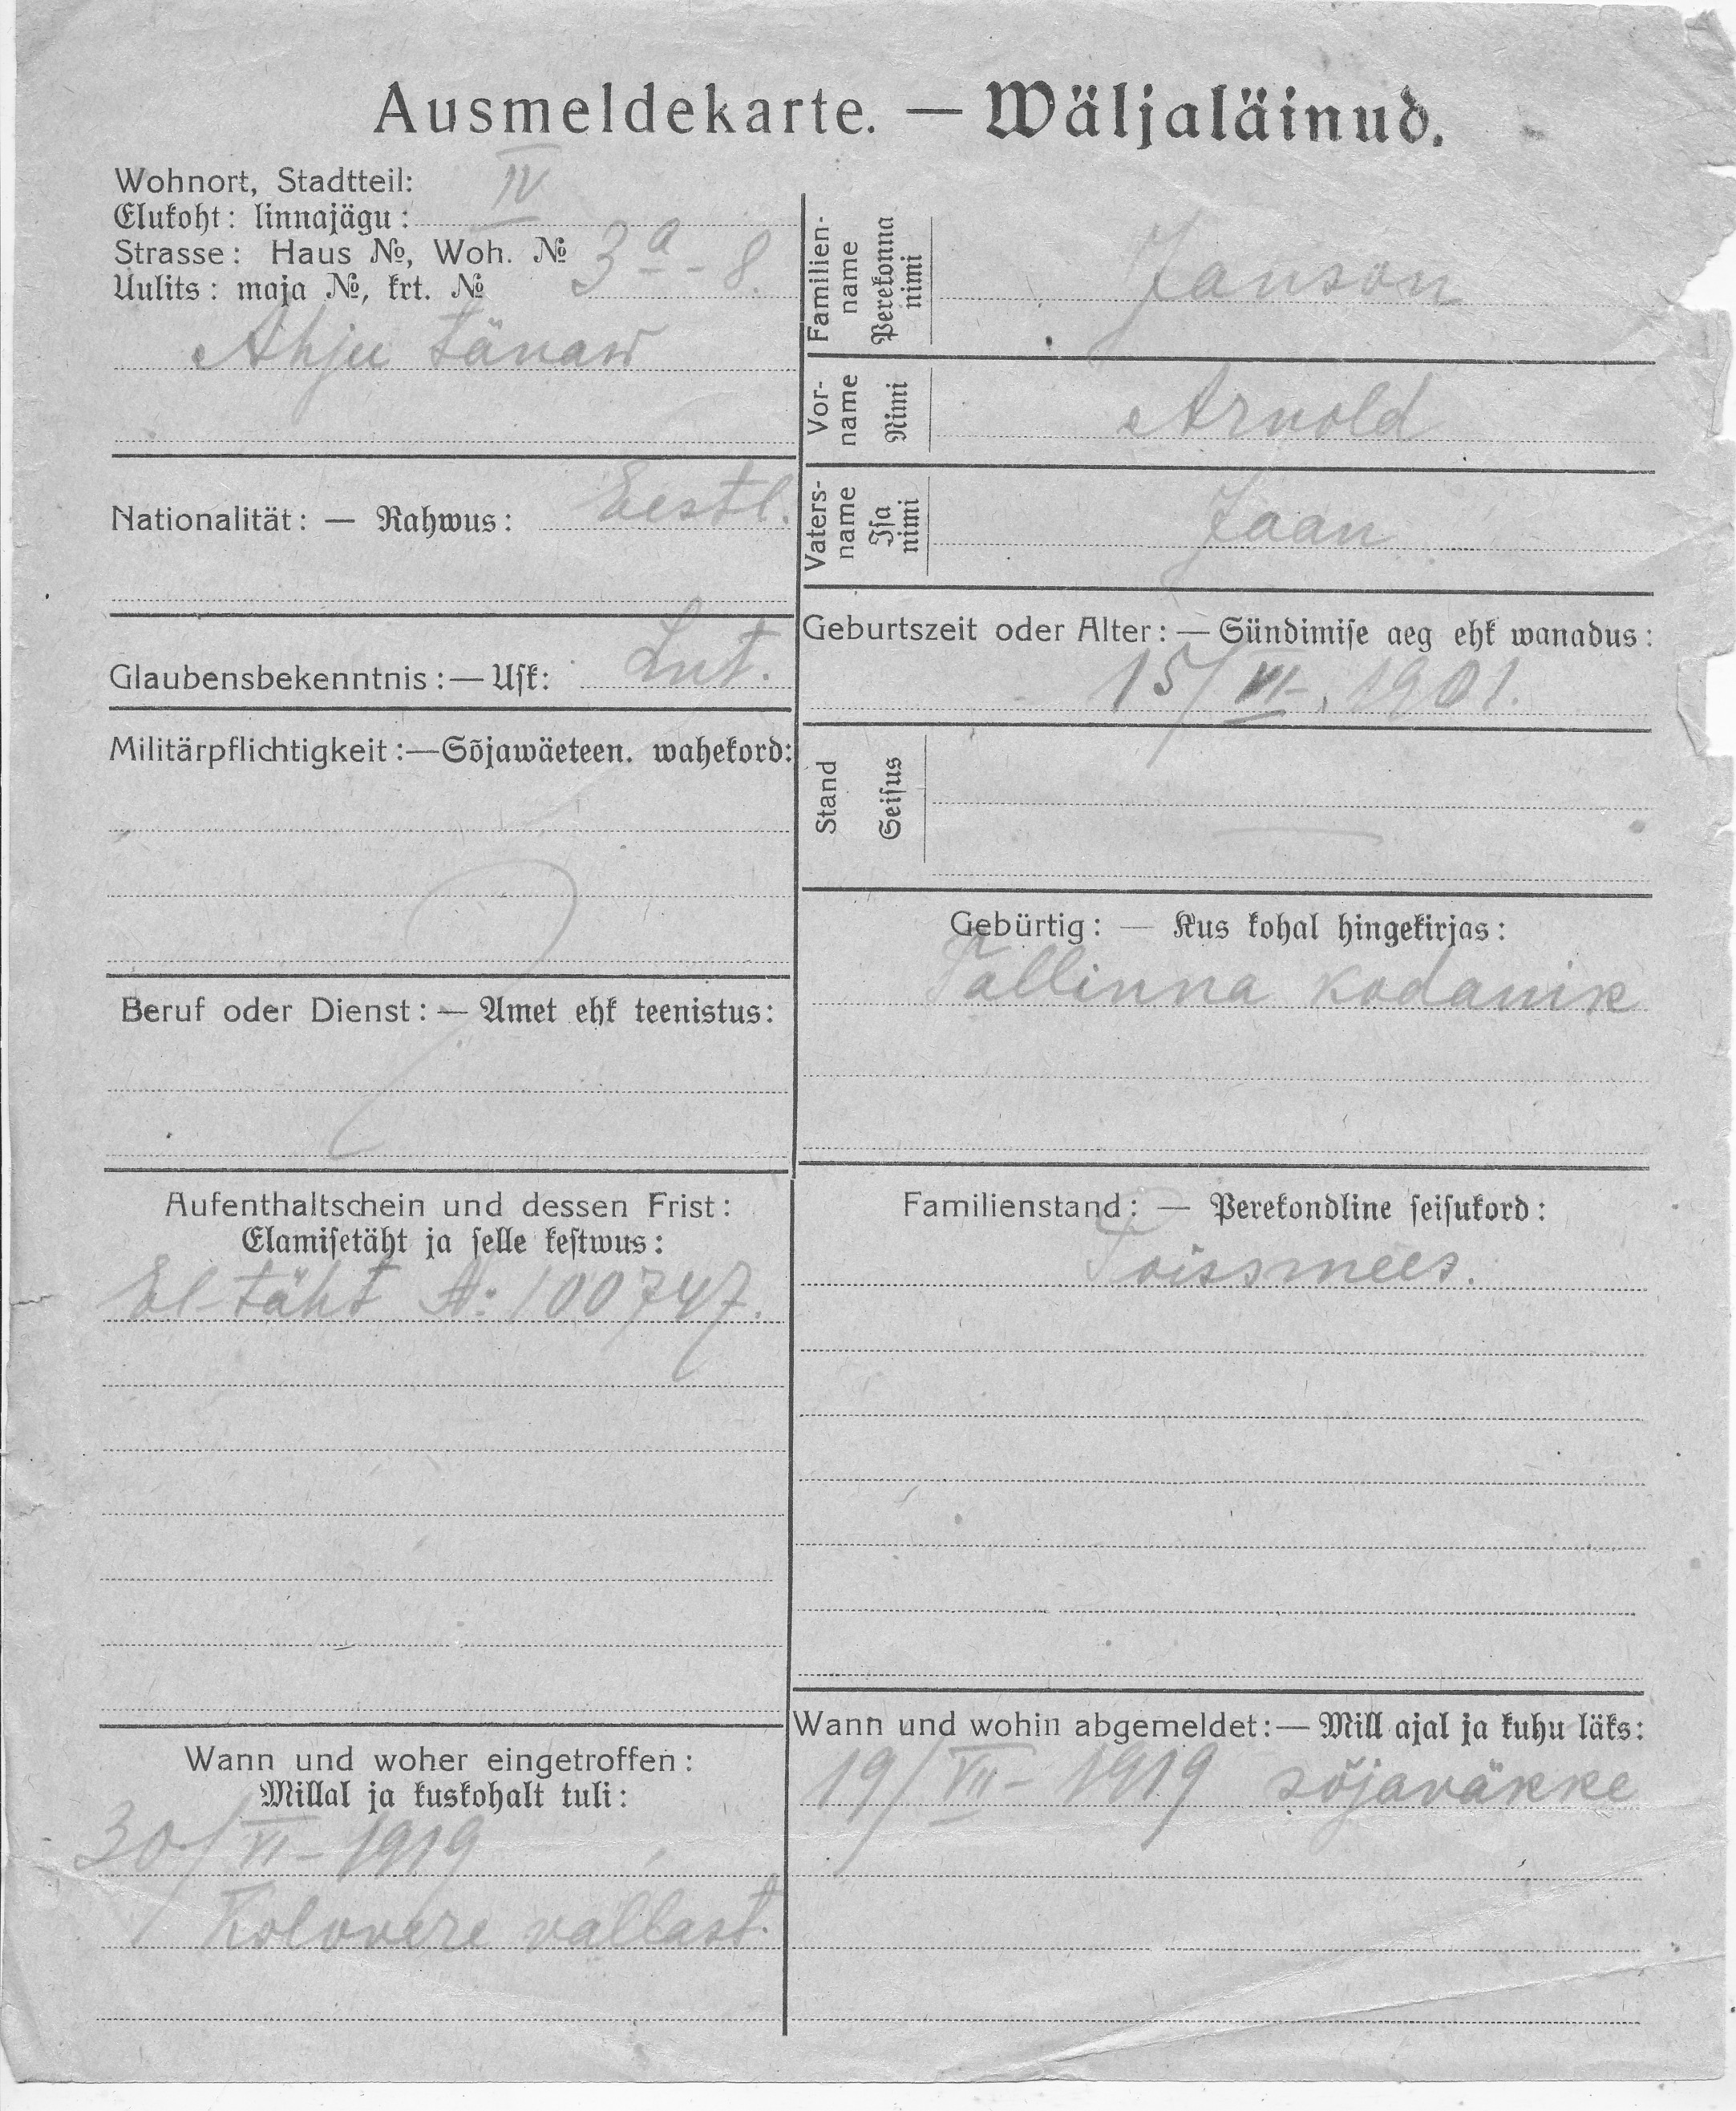 Ausmeldekarte. — Wäljaläinud.
Wohnort, Stadtteil:
IV
Elukoht: linnajägu:
Strasse: Haus №, Woh. №
3a - 8.
Uulits: maja №, krt. №
Ahju tänaw
Nationalität: — Rahwus: Eestl.
Glaubensbekenntnis: — Usk: Lut.
Militärpflichtigkeit: — Sõjawäeteen. wahekord:
Beruf oder Dienst: — Amet ehk teenistus:
Aufenthaltschein und dessen Frist:
Elamisetäht ja selle kestwus:
El-täht №: 100747.
Wann und woher eingetroffen:
Millal ja kuskohalt tuli:
30/VI - 1919
Kolovere vallast.
Familien-
name
Perekonna
nimi
Janson
Vor-
name
Nimi
Arnold
Vaters-
name
Isa
nimi
Jaan
Geburtszeit oder Alter: — Sündimise aeg ehk wanadus:
15/VI, 1901.
Stand
Seisus
—
Gebürtig: — Kus kohal hingekirjas:
Tallinna kodanik
Familienstand: — Perekondline seisukord:
Poissmees.
Wann und wohin abgemeldet: — Mill ajal ja kuhu läks:
19/VII - 1919 sõjaväkke